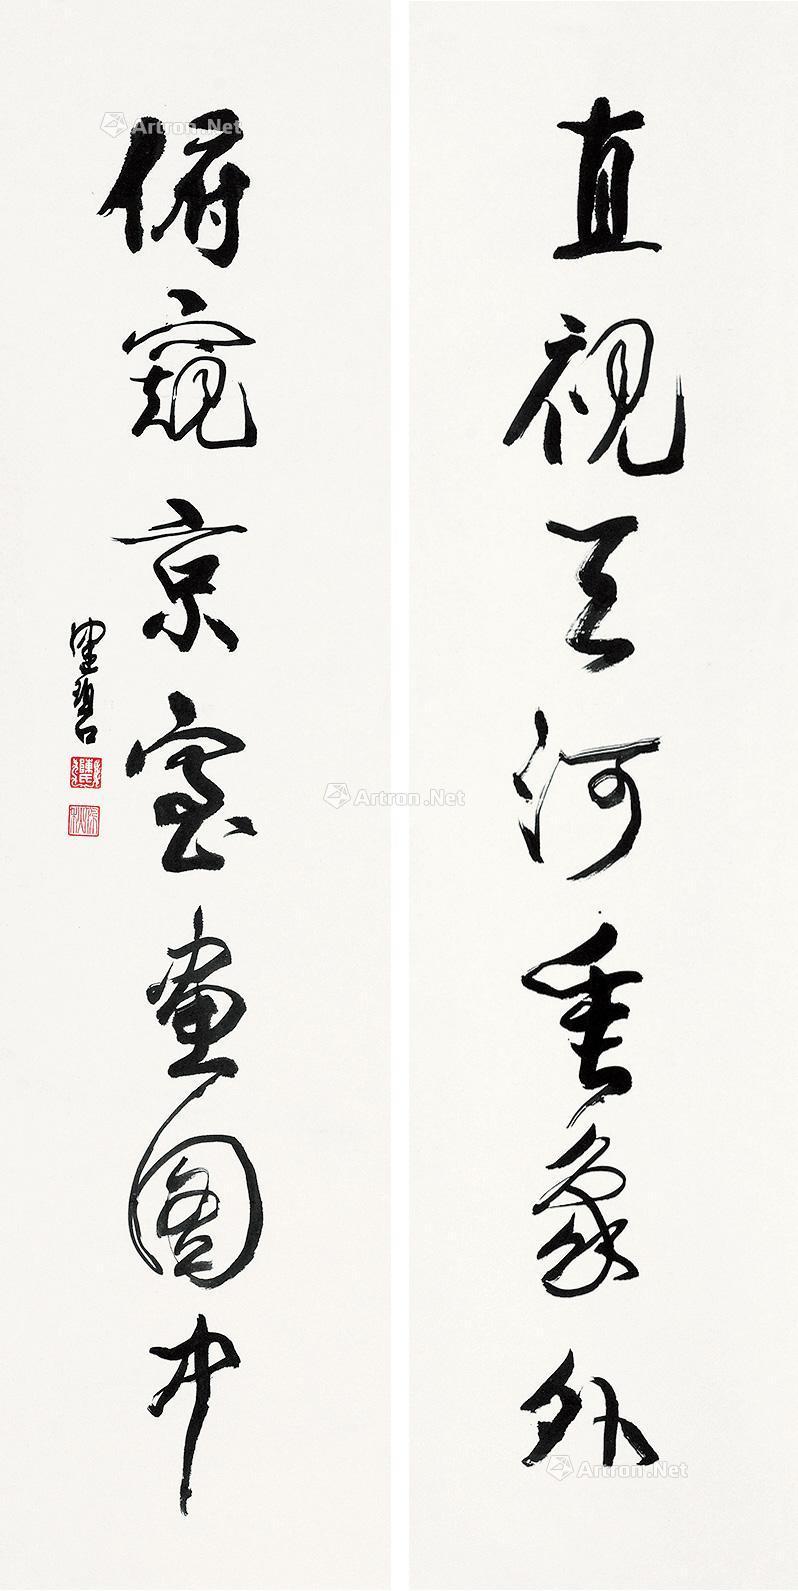 直视天河垂象外
俯窥京室画图中
健碧
Artron.Net
Artron.Net
Artron.Net